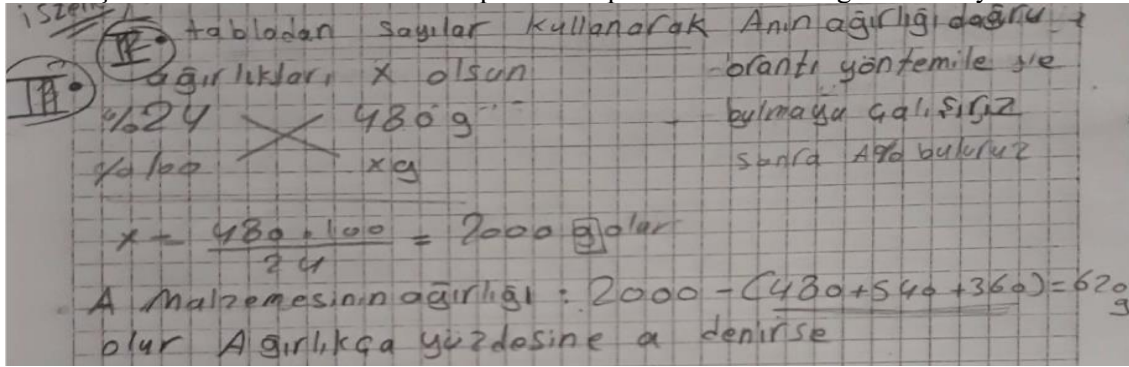 iszelik
II. tablodan sayılar kullanarak Anın ağırlığı doğru
III. ağırlıkları x olsun
orantı yöntemile
bulmaya çalışırız
sonra A% buluruz
%24 480 g
%100 x g
x = 480.100 / 24 = 2000 g olur
A malzemesinin ağırlığı : 2000 - (480+540+360) = 620 g
olur Agırlıkça yüzdesine a denirse